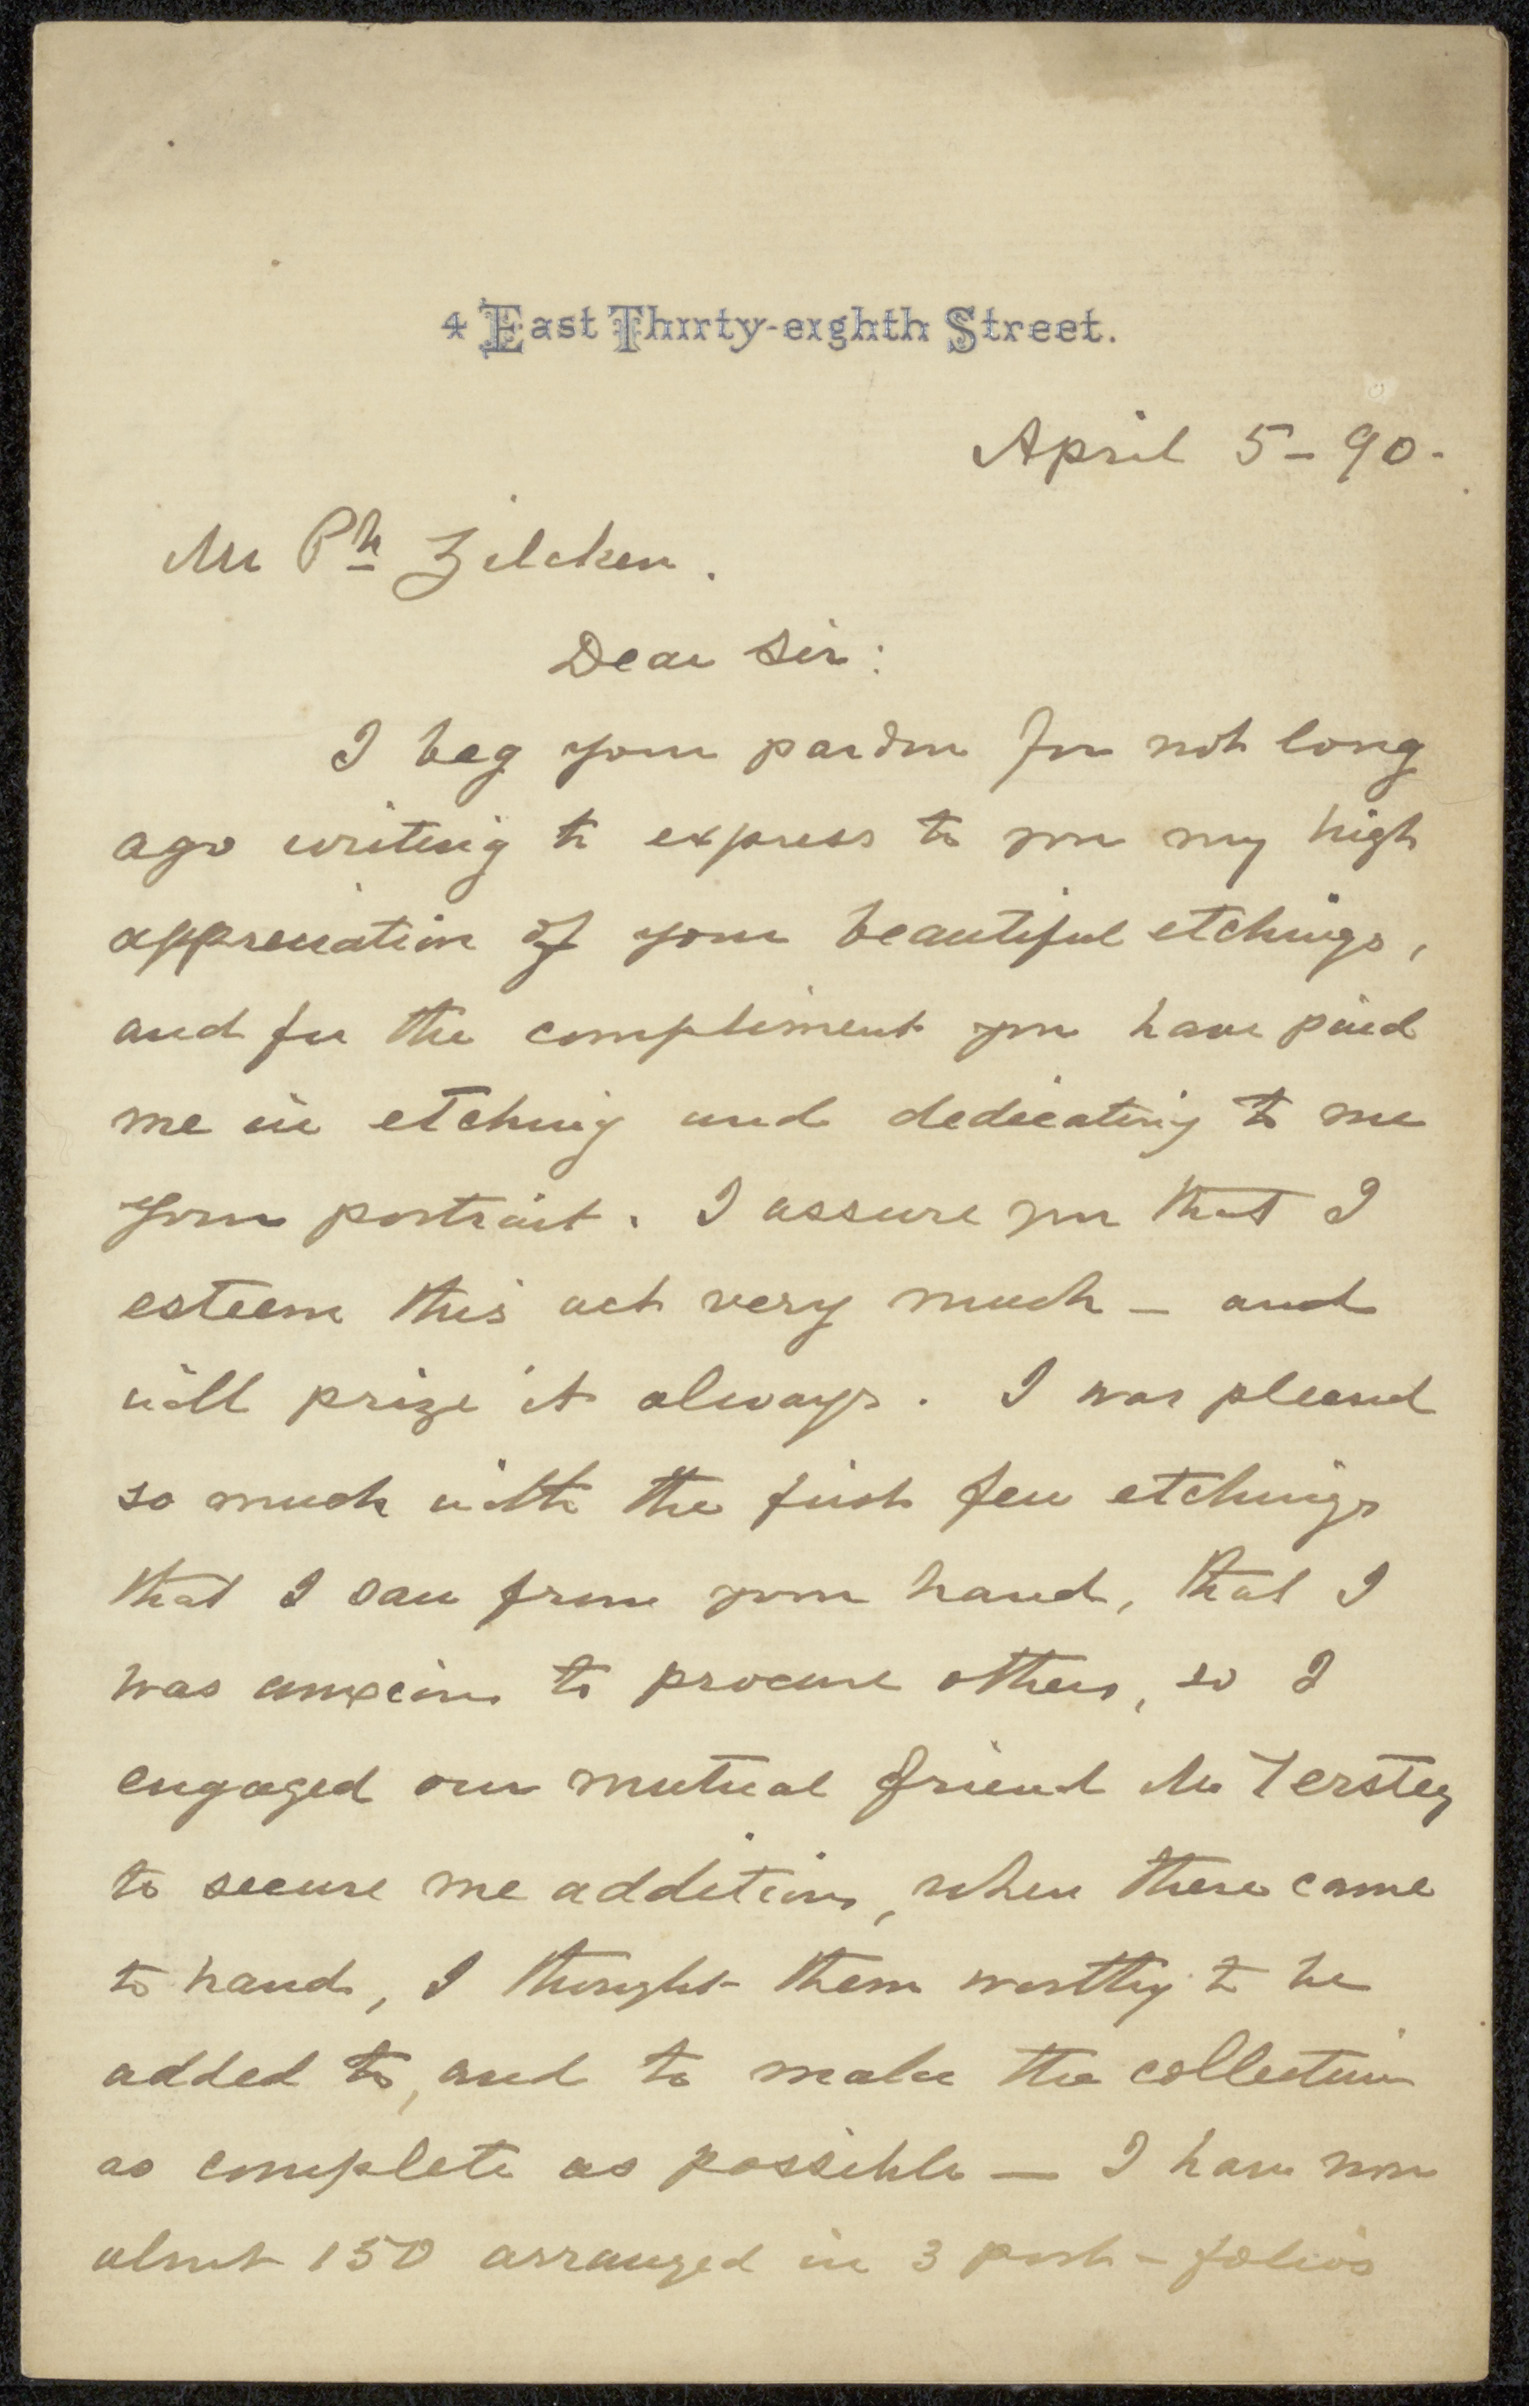 4 East Thirty-eighth Street.
April 5 - 90.
Mr Ph Zilcken.
Dear Sir:
I beg your pardon for not long
ago writing to express to you my high
appreciation of your beautiful etchings,
and for the compliment you have paid
me in etching and dedicating to me
your portrait. I assure you that I
esteem this act very much - and
will prize it always. I was pleased
so much with the first few etchings
that I saw from your hand, that I
was anxious to procure others, so I
engaged our mutual friend Mr Tersteg
to secure me additions, when these came
to hand, I thought them worthy to be
added to, and to make the collection
as complete as possible — I have now
about 150 arranged in 3 port-folios